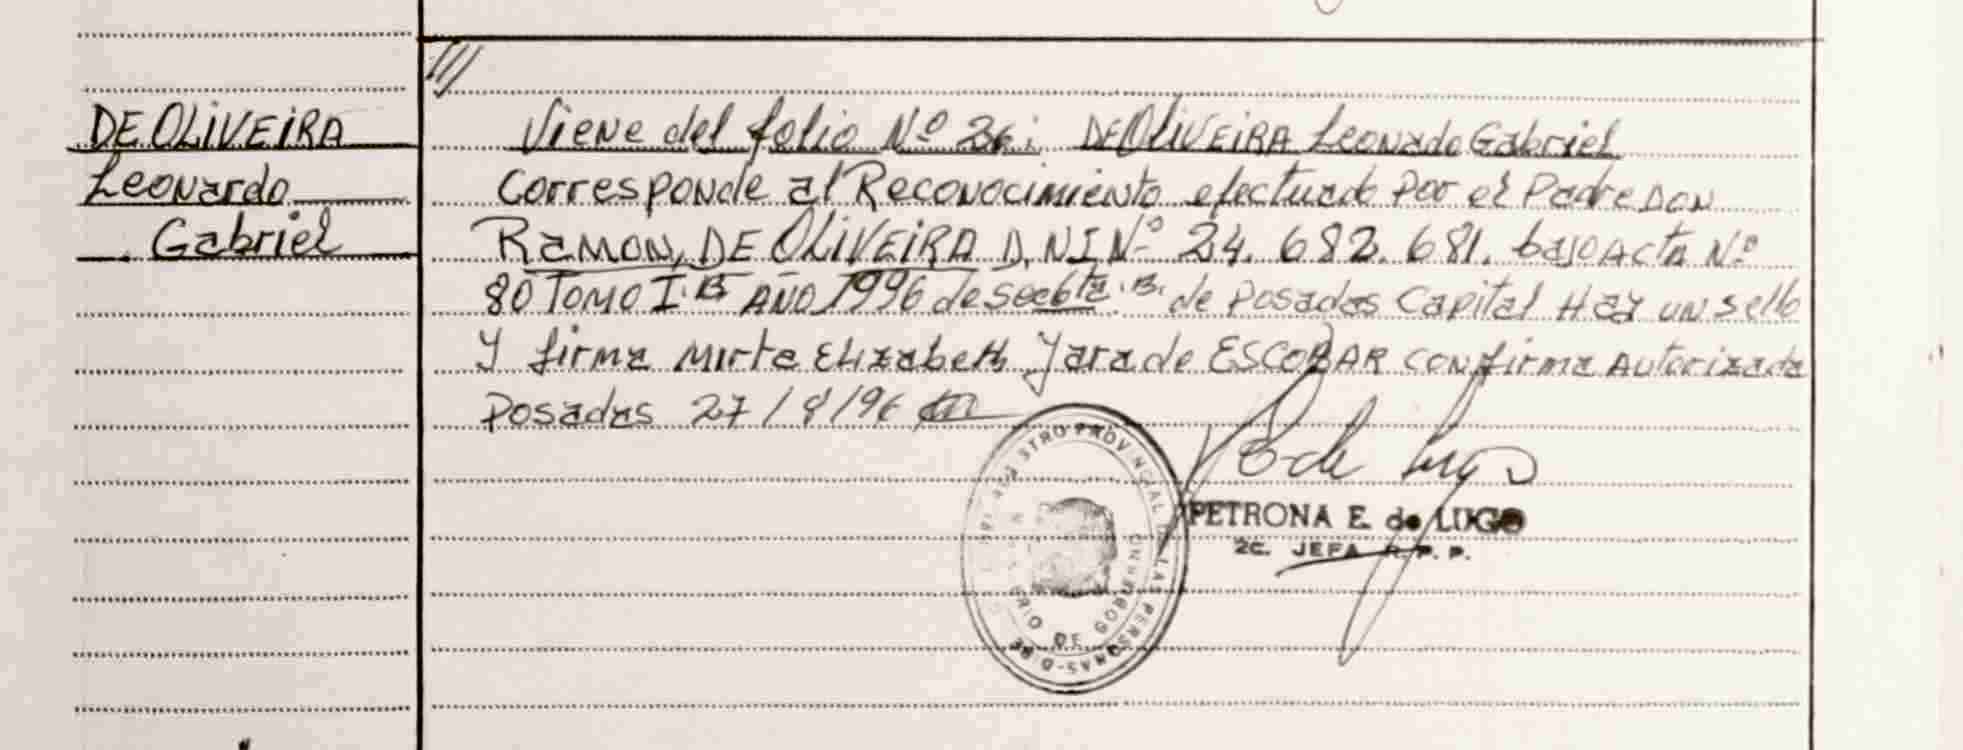 ///
DE OLIVEIRA
Leonardo
Gabriel
Viene del folio Nº 26: DE OLIVEIRA Leonardo Gabriel
Corresponde al Reconocimiento efectuado Por el Padre DON
RAMON, DE OLIVEIRA D.N.I Nº 24.682.681. bajo Acta Nº
80 TOMO I. AÑO 1996 de de Posadas Capital Hay un sello
Y firma Mirta Elizabeth Jara de ESCOBAR con firma Autorizada
Posadas 27/8/96
PETRONA E. de LUGO
JEFA R. P. P.
REGISTRO PROVINCIAL DE LAS PERSONAS
MINISTERIO DE GOBIERNO